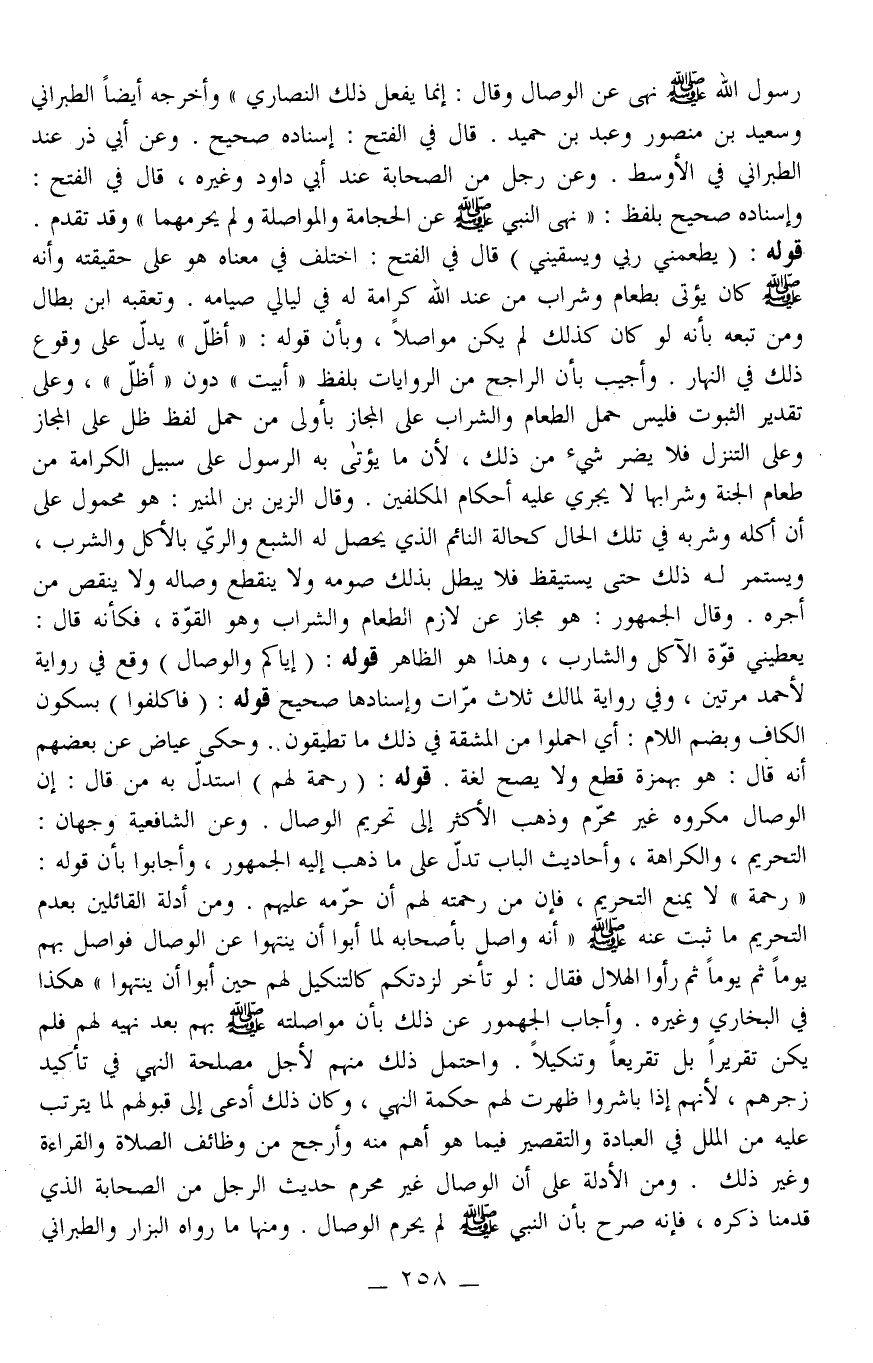 رسول الله ﷺ نهى عن الوصال وقال : إنما يفعل ذلك النصارى » وأخرجه أيضاً الطبراني
وسعيد بن منصور وعبد بن حميد . قال في الفتح : إسناده صحيح . وعن أبي ذر عند
الطبراني في الأوسط . وعن رجل من الصحابة عند أبي داود وغيره ، قال في الفتح :
وإسناده صحيح بلفظ : « نهى النبي ﷺ عن الحجامة والمواصلة ولم يحرمهما » وقد تقدم .
قوله : ( يطعمني ربي ويسقيني ) قال في الفتح : اختلف في معناه هو على حقيقته وأنه
ﷺ كان يؤتى بطعام وشراب من عند الله كرامة له في ليالي صيامه . وتعقبه ابن بطال
ومن تبعه بأنه لو كان كذلك لم يكن مواصلاً ، وبأن قوله : « أظلّ » يدلّ على وقوع
ذلك في النهار . وأجيب بأن الراجح من الروايات بلفظ « أبيت » دون « أظلّ » ، وعلى
تقدير الثبوت فليس حمل الطعام والشراب على المجاز بأولى من حمل لفظ ظل على المجاز
وعلى التنزل فلا يضر شيء من ذلك ، لأن ما يؤتى به الرسول على سبيل الكرامة من
طعام الجنة وشرابها لا يجري عليه أحكام المكلفين . وقال الزين بن المنير : هو محمول على
أن أكله وشربه في تلك الحال كحالة النائم الذي يحصل له الشبع والريّ بالأكل والشرب ،
ويستمر لـه ذلك حتى يستيقظ فلا يبطل بذلك صومه ولا ينقطع وصاله ولا ينقص من
أجره . وقال الجمهور : هو مجاز عن لازم الطعام والشراب وهو القوّة ، فكأنه قال :
يعطيني قوّة الآكل والشارب ، وهذا هو الظاهر قوله : ( إياكم والوصال ) وقع في رواية
لأحمد مرتين ، وفي رواية لمالك ثلاث مرّات وإسنادها صحيح قوله : ( فاكلفوا ) بسكون
الكاف وبضم اللام : أي احملوا من المشقة في ذلك ما تطيقون . وحكى عياض عن بعضهم
أنه قال : هو بهمزة قطع ولا يصح لغة . قوله : ( رحمة لهم ) استدلّ به من قال : إن
الوصال مكروه غير محرّم وذهب الأكثر إلى تحريم الوصال . وعن الشافعية وجهان :
التحريم ، والكراهة ، وأحاديث الباب تدلّ على ما ذهب إليه الجمهور ، وأجابوا بأن قوله :
« رحمة » لا يمنع التحريم ، فإن من رحمته لهم أن حرّمه عليهم . ومن أدلة القائلين بعدم
التحريم ما ثبت عنه ﷺ « أنه واصل بأصحابه لما أبوا أن ينتهوا عن الوصال فواصل بهم
يوماً ثم يوماً ثم رأوا الهلال فقال : لو تأخر لزدتكم كالتنكيل لهم حين أبوا أن ينتهوا » هكذا
في البخاري وغيره . وأجاب الجهمور عن ذلك بأن مواصلته ﷺ بهم بعد نهيه لهم فلم
يكن تقريراً بل تقريعاً وتنكيلاً . واحتمل ذلك منهم لأجل مصلحة النهي في تأكيد
زجرهم ، لأنهم إذا باشروا ظهرت لهم حكمة النهي ، وكان ذلك أدعى إلى قبولهم لما يترتب
عليه من الملل في العبادة والتقصير فيما هو أهم منه وأرجح من وظائف الصلاة والقراءة
وغير ذلك . ومن الأدلة على أن الوصال غير محرم حديث الرجل من الصحابة الذي
قدمنا ذكره ، فإنه صرح بأن النبي ﷺ لم يحرم الوصال . ومنها ما رواه البزار والطبراني
_ ٢٥٨ _